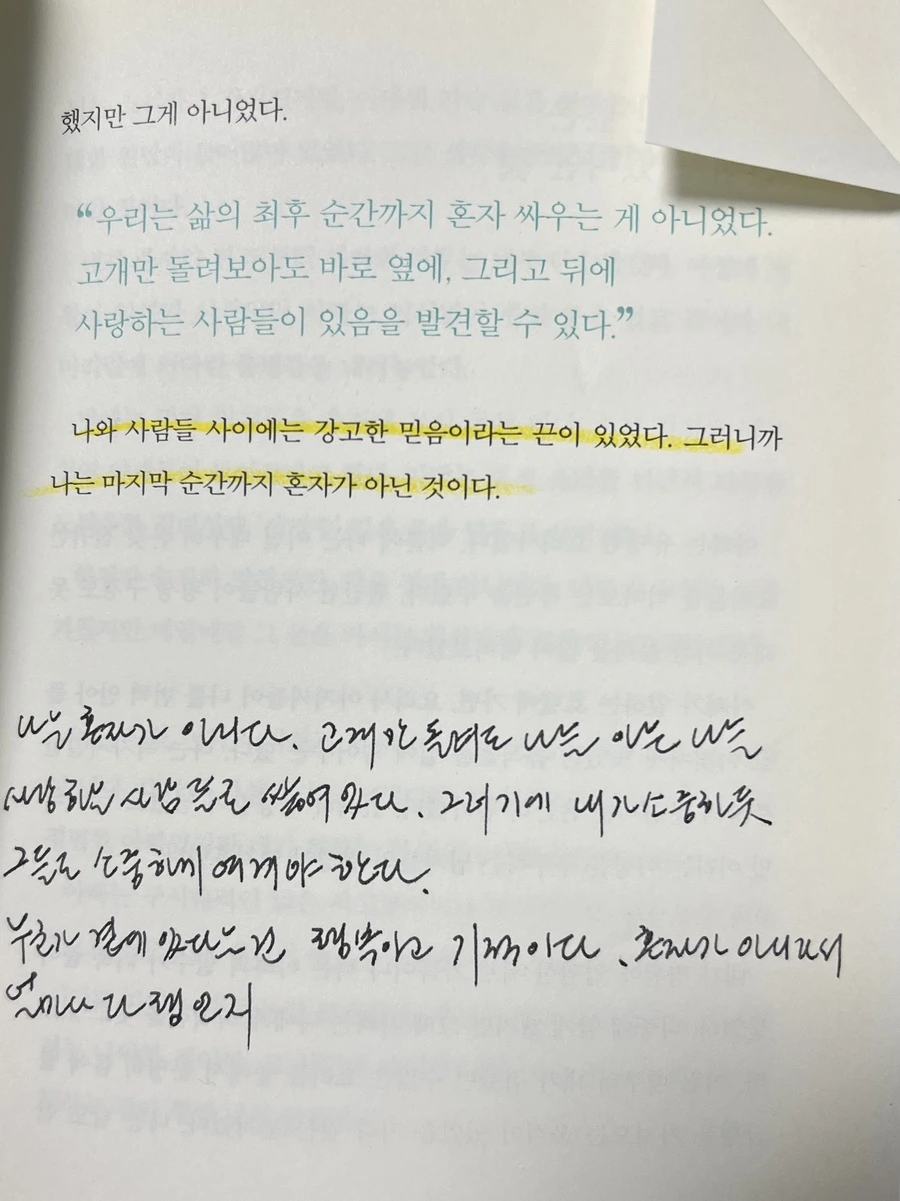 했지만 그게 아니었다.
“우리는 삶의 최후 순간까지 혼자 싸우는 게 아니었다.
고개만 돌려보아도 바로 옆에, 그리고 뒤에
사랑하는 사람들이 있음을 발견할 수 있다.”
나와 사람들 사이에는 강고한 믿음이라는 끈이 있었다. 그러니까
나는 마지막 순간까지 혼자가 아닌 것이다.
나는 혼자가 아니다. 고개만 돌려도 나를 아는 나를
사랑하는 사람들로 쌓여 있다. 그러기에 내가 소중하듯
그들도 소중하게 여겨야 한다.
누군가 곁에 있다는 건 행복이고 기적이다. 혼자가 아니라서
얼마나 다행인지